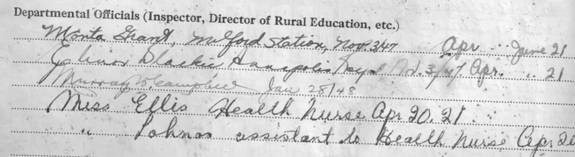 Departmental Officials (Inspector, Director of Rural Education, etc.)
Monta Grant, Milford Station, Nov 3/47 Apr. .. June 21
Elinor Blackie Annapolis Royal 3/47 Apr. .. 21
Murray Campbell Jan 28/48
Miss Ellis Health Nurse Apr 20. 21
" assistant to Health Nurse Apr 20